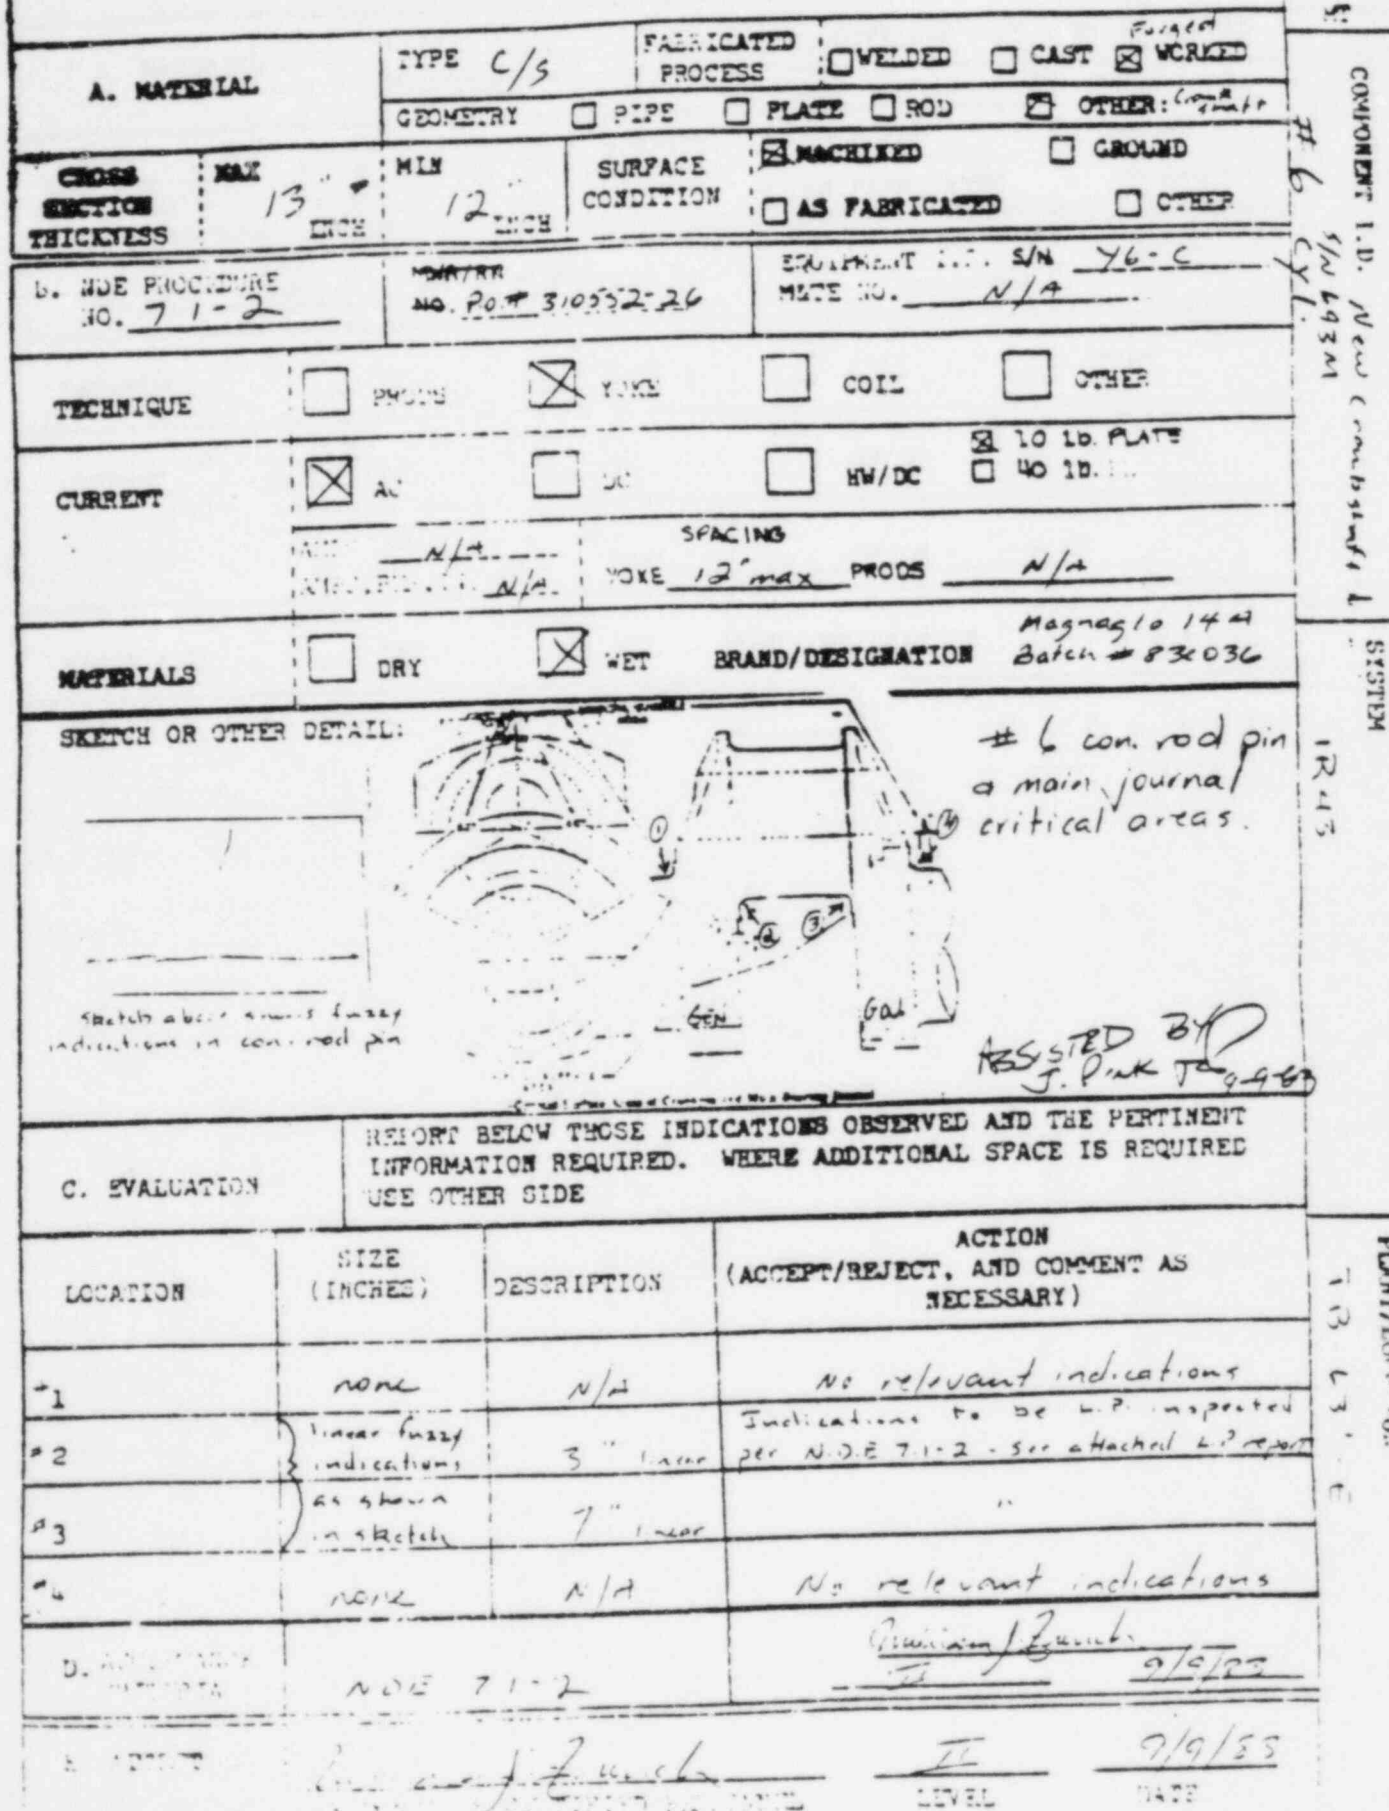 A. MATERIAL
TYPE C/S
FABRICATED PROCESS
WELDED
CAST
Forged
WORKED
GEOMETRY
PIPE
PLATE
ROD
OTHER:
CROSS SECTION THICKNESS
MAX 13" INCH
MIN 12" INCH
SURFACE CONDITION
MACHINED
GROUND
AS FABRICATED
OTHER
NDE PROCEDURE
NO. 7 1-2
NO. PO.# 310552-26
EQUIPMENT S/N Y6-C
M&TE NO. N/A
TECHNIQUE
PRODS
YOKE
COIL
OTHER
CURRENT
AC
DC
HW/DC
10 lb. PLATE
40 lb.
N/A
N/A
SPACING
YOKE 12" max PRODS N/A
MATERIALS
DRY
WET
BRAND/DESIGNATION
Magnaglo 14 A
Batch # 83C036
SKETCH OR OTHER DETAIL:
# 6 con. rod pin
a main journal
critical areas.
1
2
3
4
GEN
Gov
Sketch above shows fuzzy
indications in con. rod pin
ASSISTED BY
J. Pink 9-9-83
C. EVALUATION
REPORT BELOW THOSE INDICATIONS OBSERVED AND THE PERTINENT
INFORMATION REQUIRED. WHERE ADDITIONAL SPACE IS REQUIRED
USE OTHER SIDE
LOCATION
SIZE (INCHES)
DESCRIPTION
ACTION
(ACCEPT/REJECT, AND COMMENT AS
NECESSARY)
#1 none N/A No relevant indications
#2 linear fuzzy indications 3" linear
Indications to be L.P. inspected
per N.D.E 7.1-2 - see attached L.P report
#3 as shown in sketch 7" linear "
#4 none N/A No relevant indications
D.
NDE 7 1-2
II 9/9/83
J Zurich II 9/9/83
LEVEL DATE
COMPONENT I.D. New Crankshaft
S/N 693M
# 6 CYL.
SYSTEM
1R43
TB 63' E